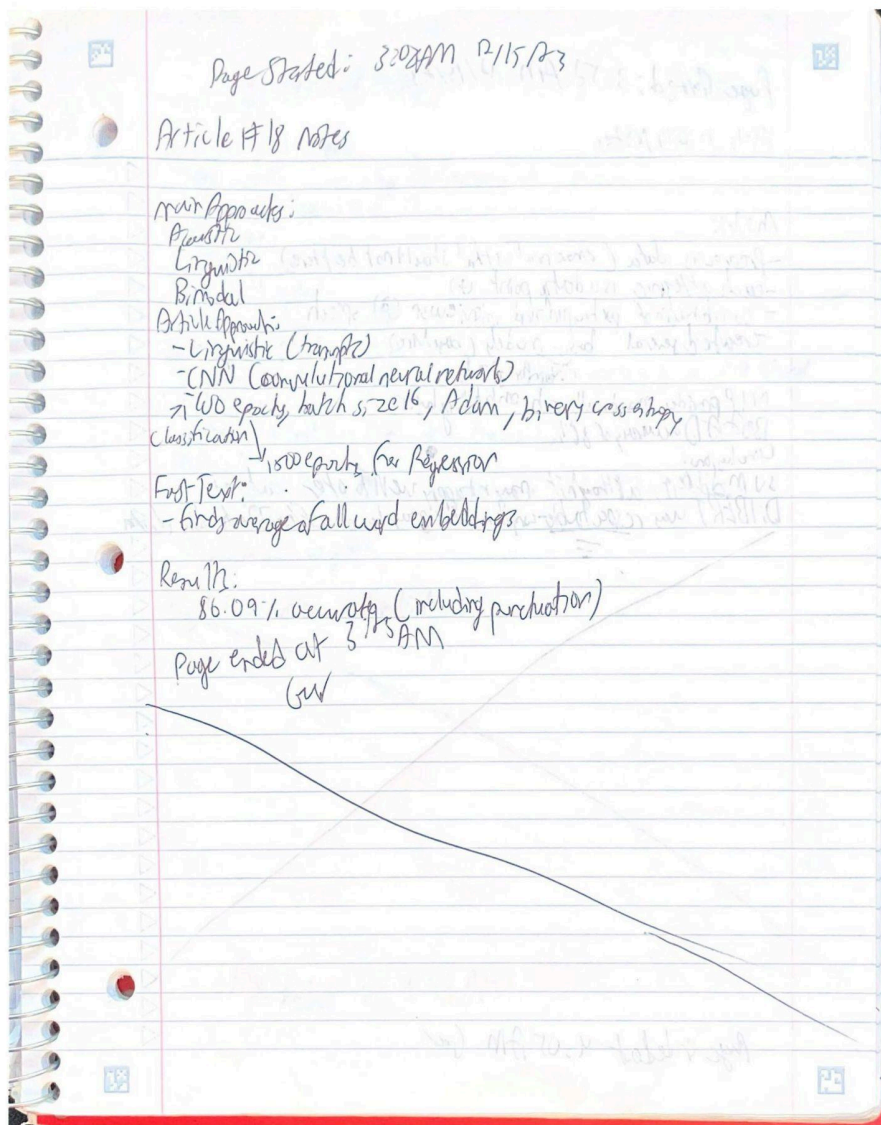 Page Started: 3:02AM 12/15/23
Article #18 Notes
Main Approaches:
Acoustic
Linguistic
Bimodal
Article Approach:
- Linguistic (transcripts)
- CNN (convolutional neural networks)
epochs, batch size 16, Adam, binary cross entropy
Classification
epochs for Regression
Fast Text:
- finds average of all word embeddings
Results:
86.09% accuracy (including punctuation)
Page ended at AM